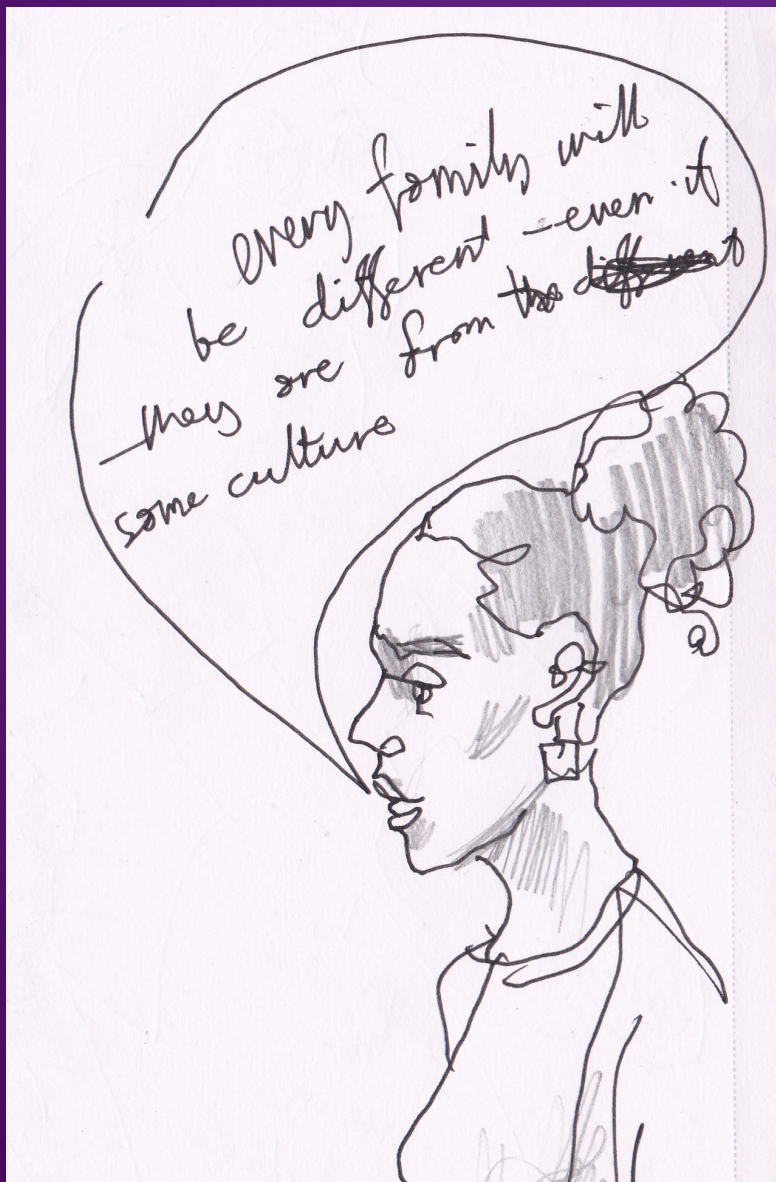 every family will
be different - even if
they are from the different
same culture